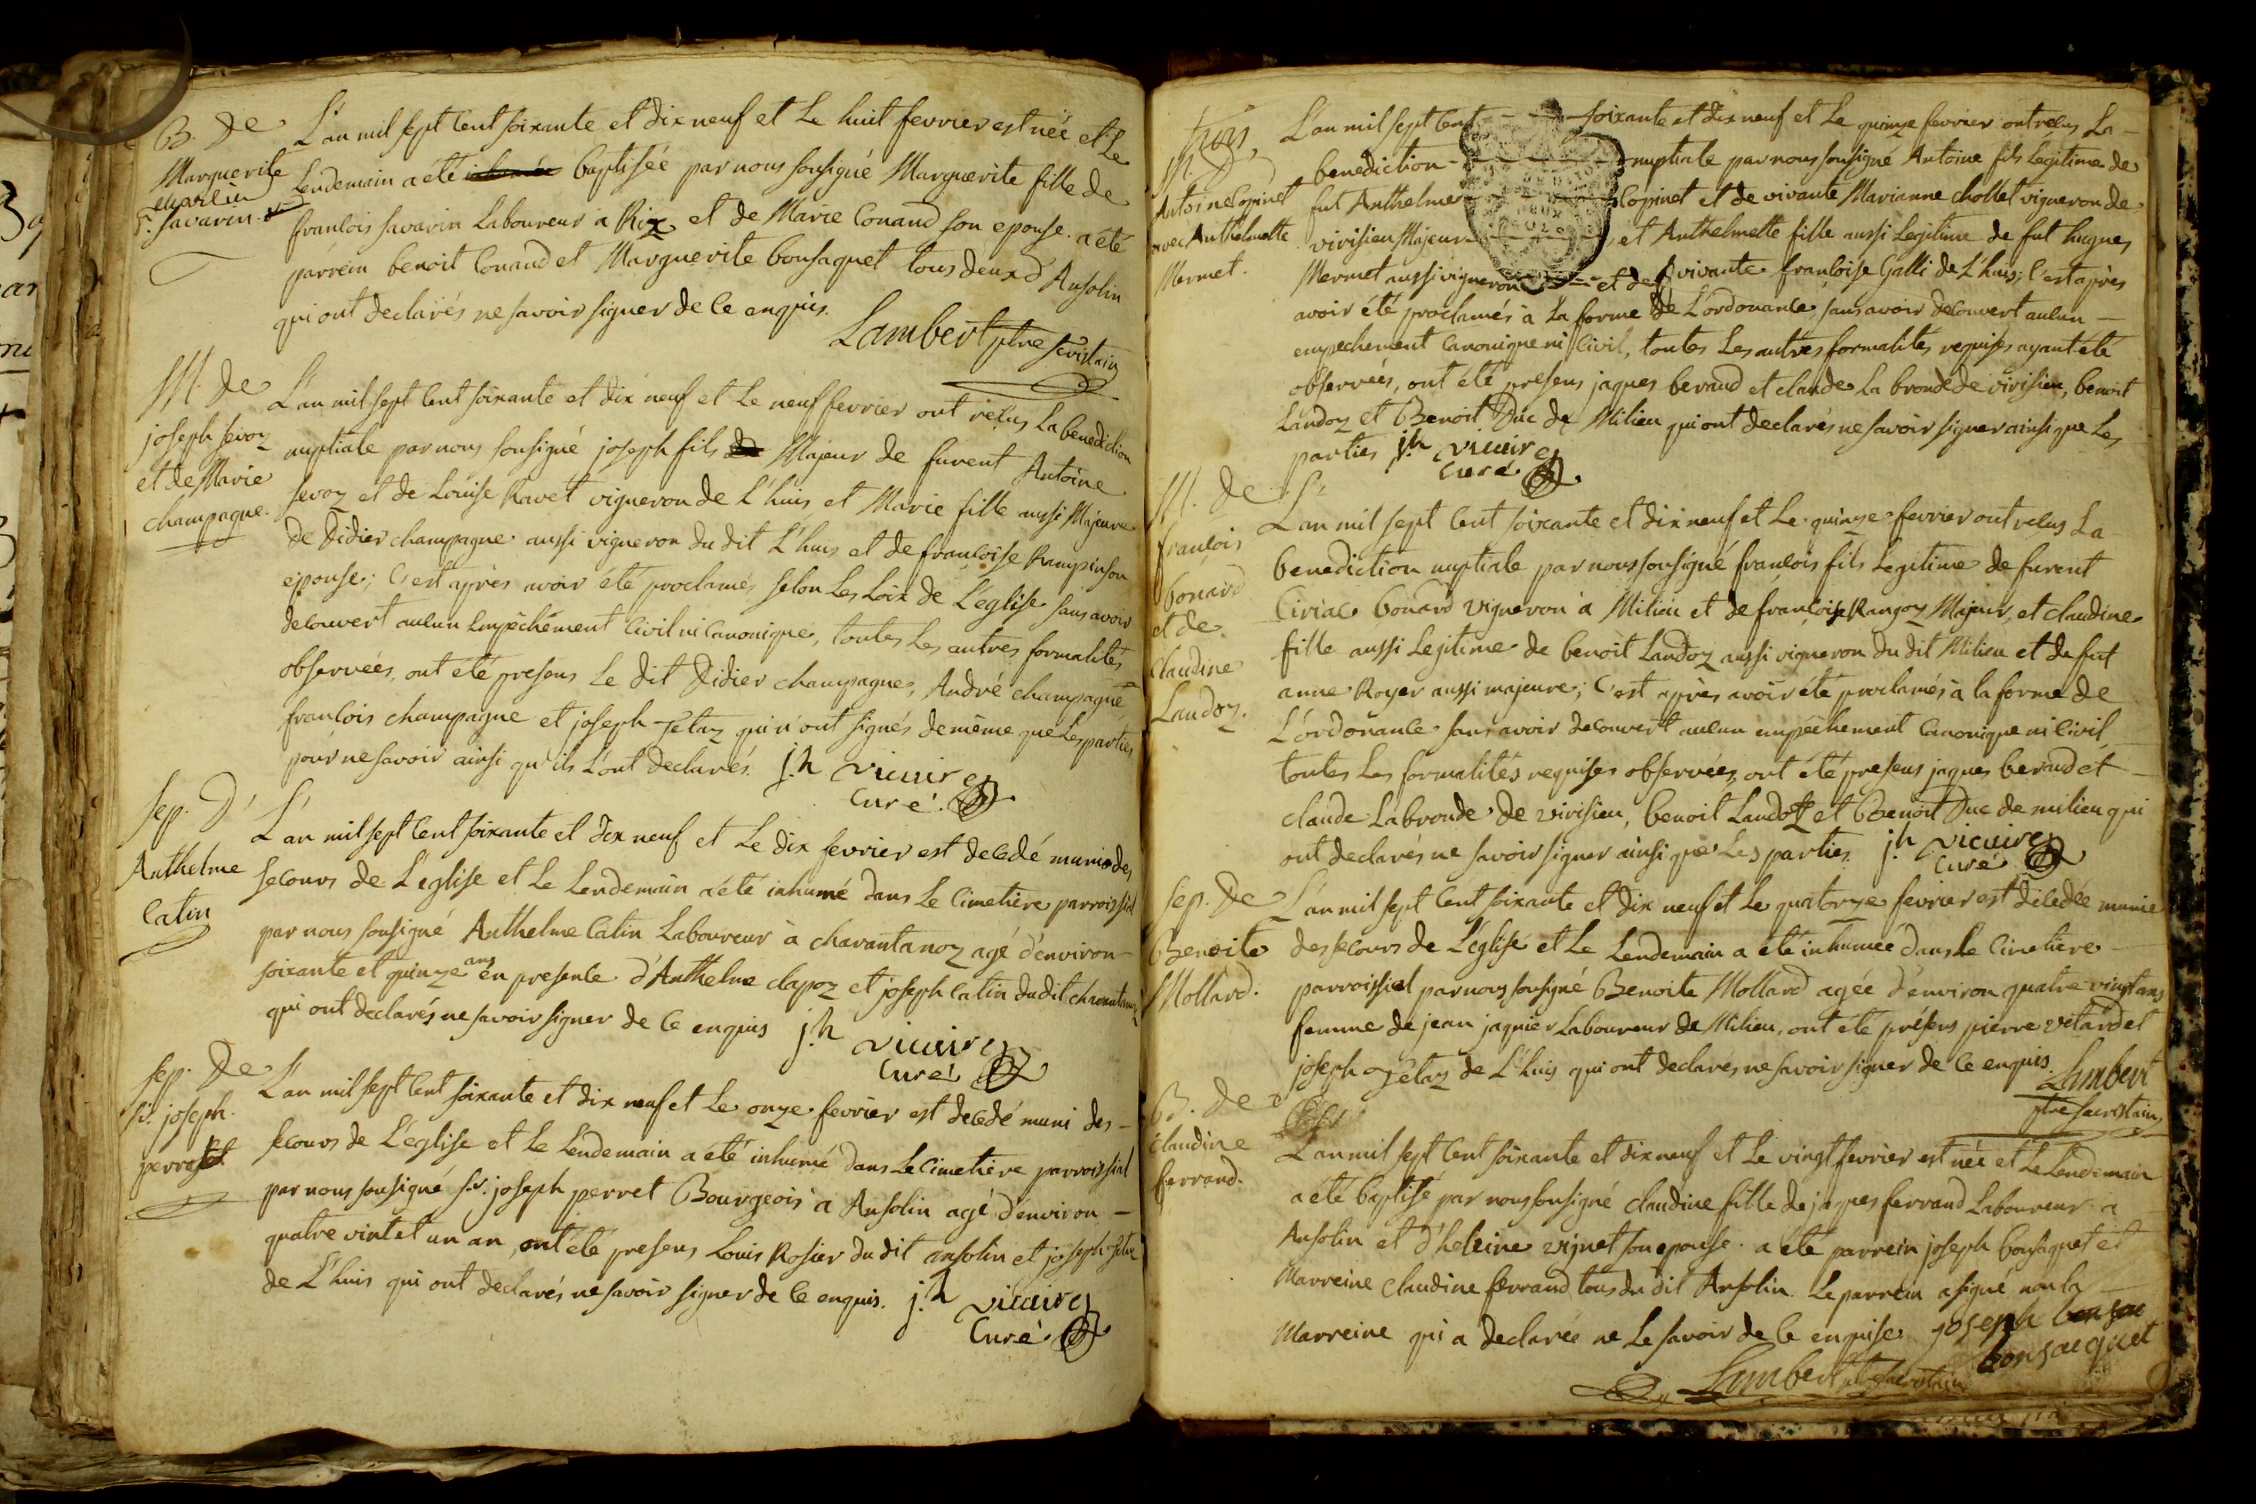 B. De
Marguerite
Savarin
L'an mil sept cent soixante et dix neuf et Le huit fevrier est née et Le
Lendemain a été baptisée par nous sousigné Marguerite fille de
francois savarin Laboureur a Rix et de Marie Conand son epouse. a été
parrein benoit Conand et Marguerite bonsaquet tous deux d'Ansolin
qui ont declarés ne savoir signer de ce enquis.
Lambert ptre scristain
M. De
joseph sevoz
et de Marie
champagne.
L'an mil sept cent soixante et dix neuf et Le neuf fevrier ont reçus La benediction
nuptiale par nous sousigné joseph fils Majeur de furent Antoine
sevoz et de Louise Ravet vigneron de L'huis et Marie fille aussi Majeure
de Didier champagne aussi vigneron du dit L'huis et de francoise Rampinson
epouse; C'est après avoir été proclamés selon Les Loix de L'eglise sans avoir
decouvert aucun Empêchément civil ni Canonique, toutes Les autres formalités
observées, ont été presens Le dit Didier champagne, André champagne,
francois champagne et joseph jetaz qui n'ont signés de même que Les parties
pour ne savoir ainsi qu'ils L'ont declarés. j.h vicaire
Curé.
Sep. D'
Anthelme
Catin
L'an mil sept cent soixante et dix neuf et Le dix fevrier est decedé muni des
secours de L'eglise et Le Lendemain a été inhumé dans Le Cimetière parroissial
par nous sousigné Anthelme Catin Laboureur à charantanoz agé d'environ
soixante et quinze ans en presence d'Anthelme clapoz et joseph Catin du dit charantanoz
qui ont declarés ne savoir signer de ce enquis j.h vicaire
Curé
Sep. De
sr. joseph
perret
L'an mil sept cent soixante et dix neuf et Le onze fevrier est decedé muni des
secours de L'eglise et Le Lendemain a été inhumé dans Le Cimetière parroissial
par nous sousigné sr. joseph perret Bourgeois a Ansolin agé d'environ
quatre vint et un an, ont été presens Louis Rosier du dit ansolin et joseph jetaz
de L'huis qui ont declarés ne savoir signer de ce enquis. j.h vicaire
Curé
M. D'
Antoine Copinet
avec Anthelmette
Mermet.
L'an mil sept cent soixante et dix neuf et Le quinze fevrier ont reçus La
benediction nuptiale par nous sousigné Antoine fils Legitime de
fut Anthelme Copinet et de vivante Marianne chollet vigneron de
virisieu Majeur et Anthelmette fille aussi Legitime de fut hugues
Mermet aussi vigneron et de vivante francoise Galli de L'huis; c'est après
avoir été proclamés à La forme de L'ordonance, sans avoir decouvert aucun
empechement Canonique ni Civil, toutes Les autres formalités requises ayant été
observées, ont été presens jaques beraud et claude La bronde de virisieu, benoit
Landoz et Benoit Duc de Milieu qui ont declarés ne savoir signer ainsi que Les
parties j.h vicaire
Curé
M. De
francois
bonard
et de
Claudine
Landoz.
L'an mil sept cent soixante et dix neuf et Le quinze fevrier ont reçus La
benediction nuptiale par nous sousigné francois fils Legitime de furent
Ciriac bonard vigneron à Milieu et de francoise Rangoz Majeur, et claudine
fille aussi Legitime de benoit Landoz aussi vigneron du dit Milieu et de fut
anne Royer aussi majeure; C'est après avoir été proclamés à la forme de
L'ordonance sans avoir decouvert aucun empêchement Canonique ni Civil
toutes Les formalités requises observées, ont été presens jaques beraud et
claude Labronde de virisieu, benoit Landoz et Benoit Duc de milieu qui
ont declarés ne savoir signer ainsi que Les parties. j.h vicaire
Curé
Sep. De
Benoite
Mollard.
L'an mil sept cent soixante et dix neuf et Le quatorze fevrier est décedée munie
des secours de L'église et Le Lendemain a été inhumée dans Le Cimetière
parroissial par nous sousigné Benoite Mollard agée d'environ quatre vingt ans
femme de jean jaquier Laboureur de Milieu, ont été présens pierre vetard et
joseph jetaz de L'huis qui ont declarés ne savoir signer de ce enquis.
Lambert
ptre sacristain
B. de
Claudine
ferrand.
L'an mil sept cent soixante et dix neuf et Le vingt fevrier est née et Le Lendemain
a été baptisé par nous sousigné claudine fille de jaques ferrand Laboureur a
Ansolin et d'heleine vignet son epouse. a été parrein joseph bonsaquet et
Marreine claudine ferrand tous du dit Ansolin. Le parrein a signé non la
Marreine qui a declarée ne Le savoir de ce enquise joseph
bonsacquet
Lambert ptre sacristain